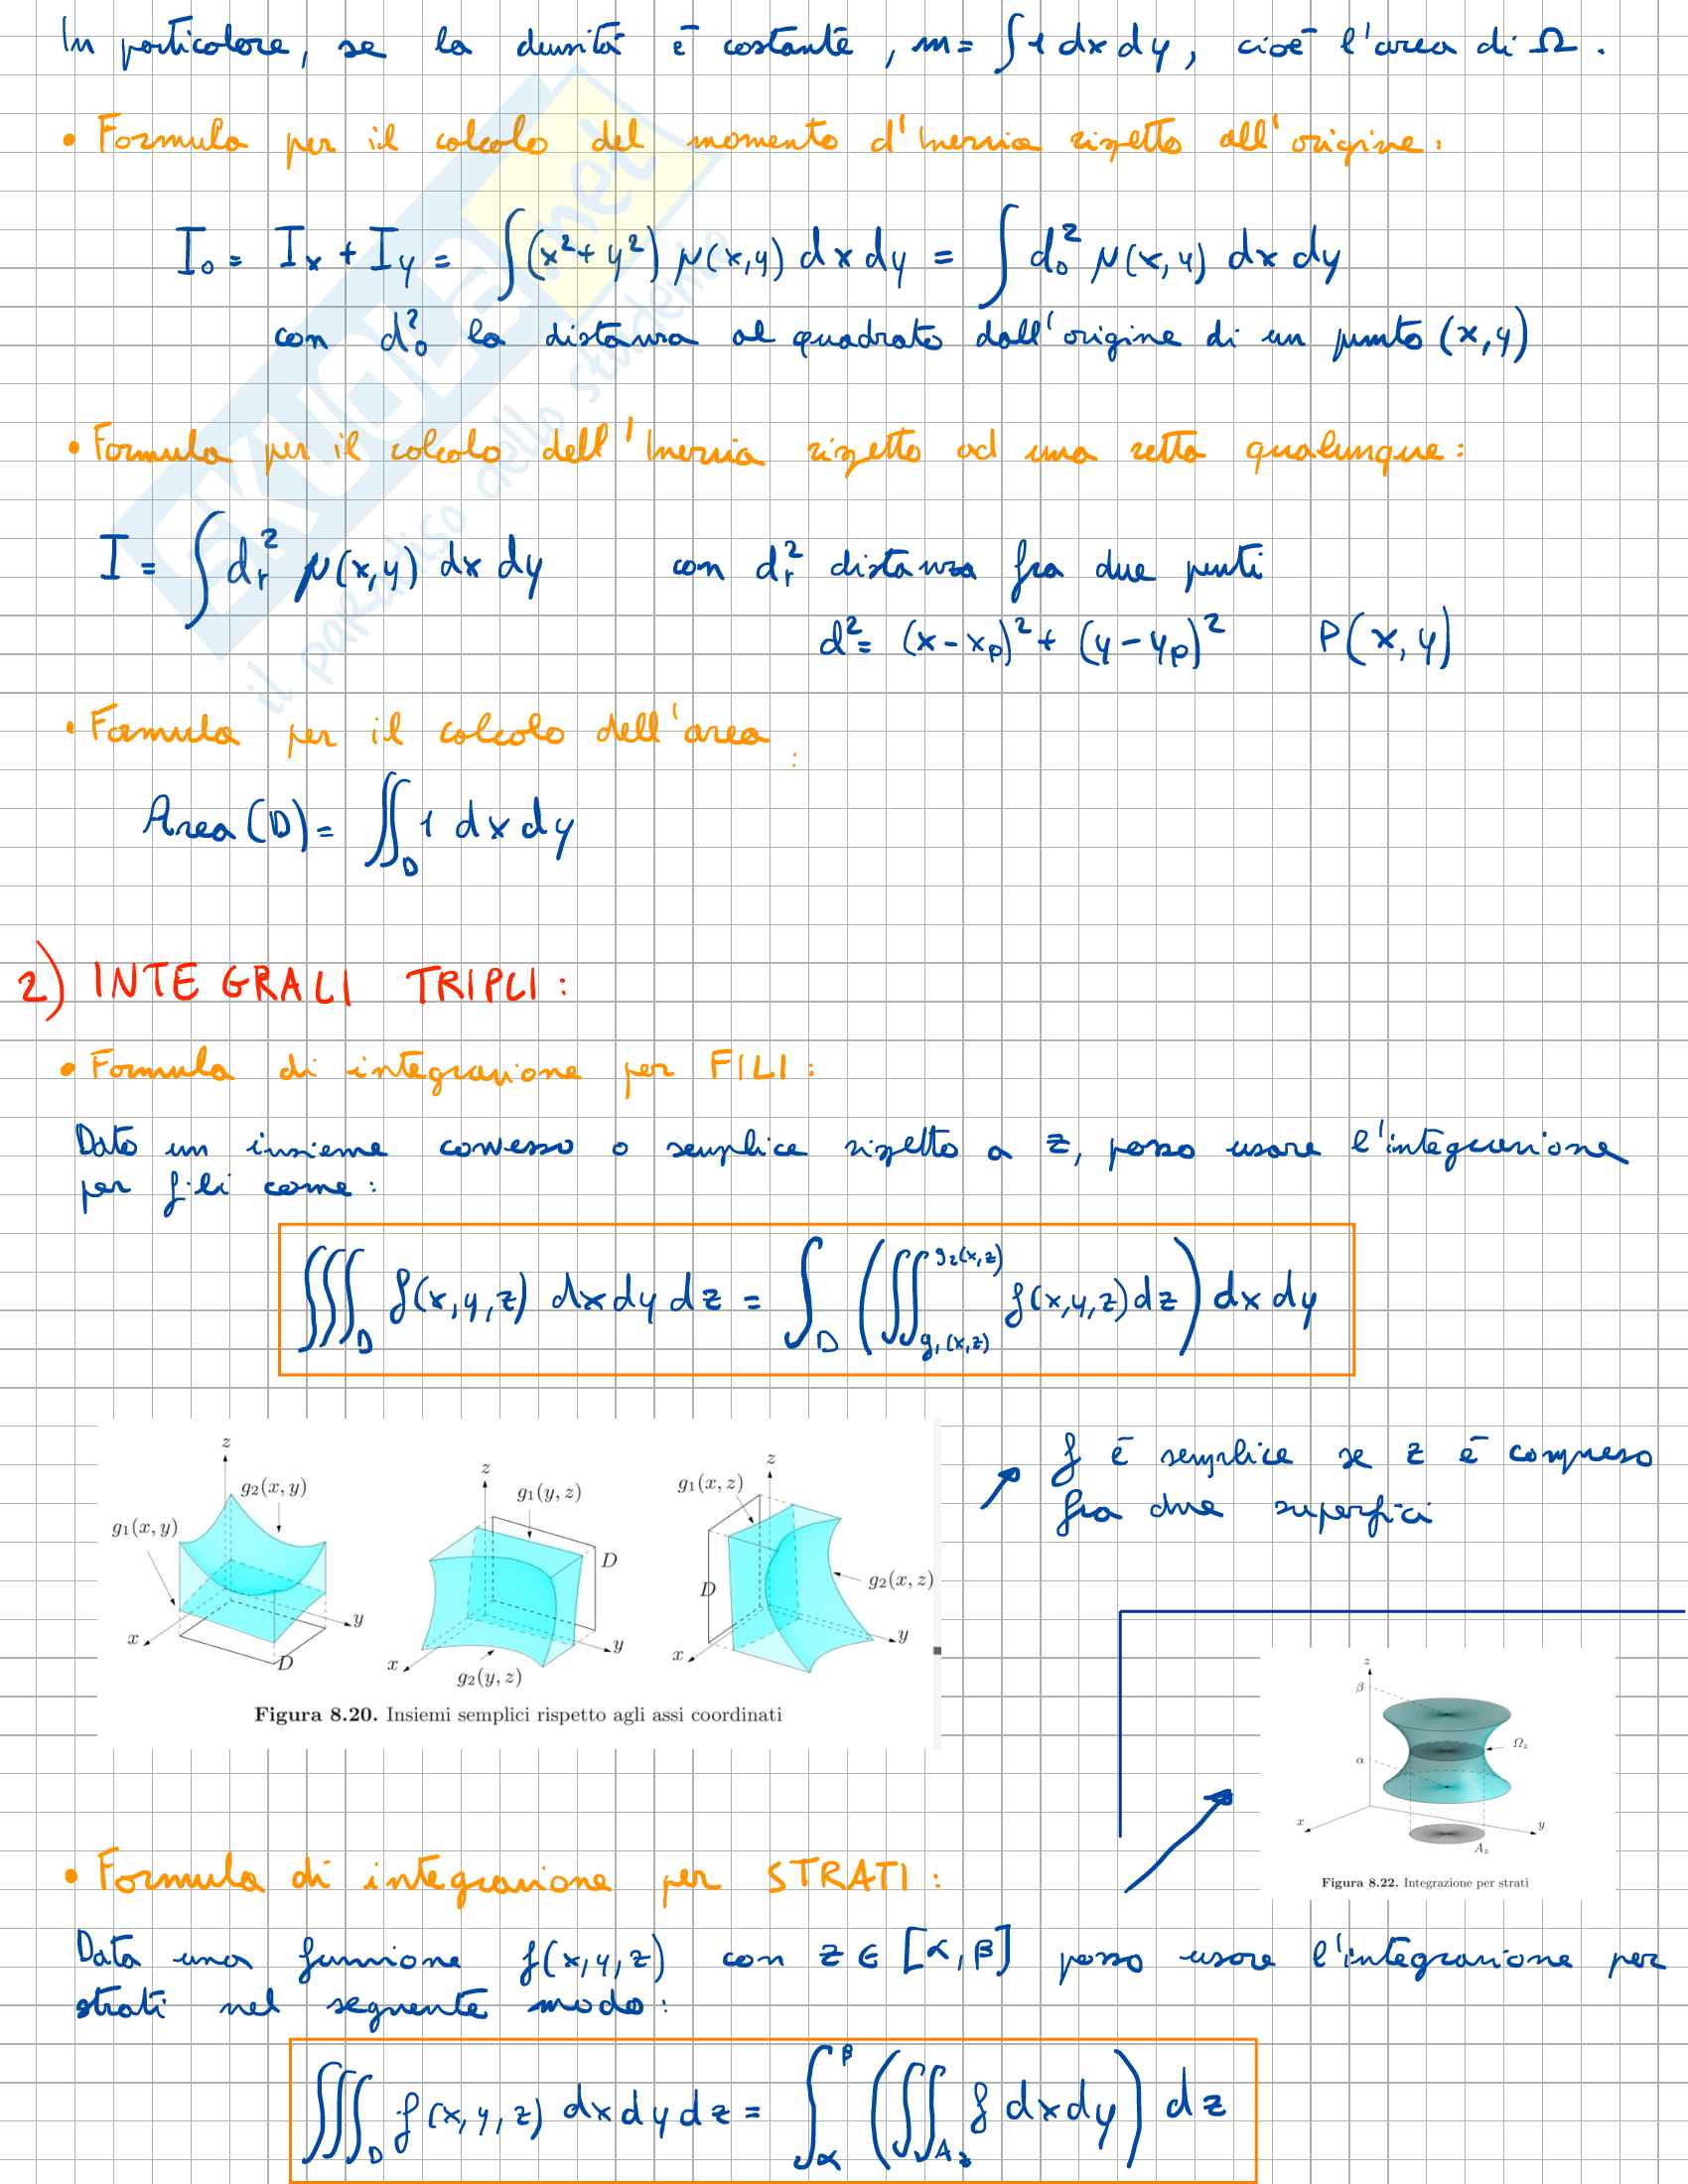 In particolare, se la densità è costante, m = ∫ 1 dx dy, cioè l'area di Ω.
• Formula per il calcolo del momento d'Inerzia rispetto all'origine:
I₀ = Iₓ + I_y = ∫ (x² + y²) μ(x,y) dx dy = ∫ d₀² μ(x,y) dx dy
con d₀² la distanza al quadrato dall'origine di un punto (x,y)
• Formula per il calcolo dell'Inerzia rispetto ad una retta qualunque:
I = ∫ d_r² μ(x,y) dx dy con d_r² distanza fra due punti
d² = (x - x_p)² + (y - y_p)² P(x,y)
• Formula per il calcolo dell'area:
Area (D) = ∬_D 1 dx dy
2) INTEGRALI TRIPLI:
• Formula di integrazione per FILI:
Dato un insieme connesso o semplice rispetto a z, posso usare l'integrazione
per fili come:
∭_D f(x,y,z) dx dy dz = ∫_D (∬_{g₁(x,z)}^{g₂(x,z)} f(x,y,z) dz) dx dy
f è semplice se z è compreso
fra due superfici
z g₂(x, y) g₁(x, y) x y D
z g₁(y, z) D x y g₂(y, z)
z g₁(x, z) D g₂(x, z) x y
Figura 8.20. Insiemi semplici rispetto agli assi coordinati
z β α Ω_z x y A_z
Figura 8.22. Integrazione per strati
• Formula di integrazione per STRATI:
Data una funzione f(x,y,z) con z ∈ [α,β] posso usare l'integrazione per
strati nel seguente modo:
∭_D f(x,y,z) dx dy dz = ∫_α^β (∬_{A_z} f dx dy) dz
SKUOLA.net
il paradiso dello studente